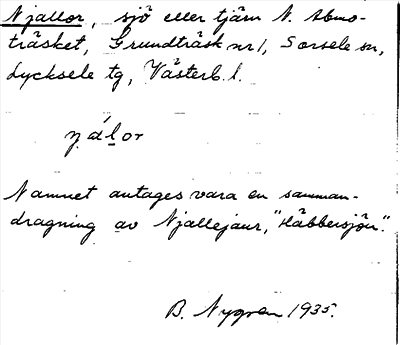 Njallor, sjö eller tjärn N. Abmo-
träsket, Grundträsk nr 1, Sorsele sn,
Lycksele tg, Västerb. l.
Namnet antages vara en samman-
dragning av Njallejaur, "Häbbersjön".
B. Nygren 1935.